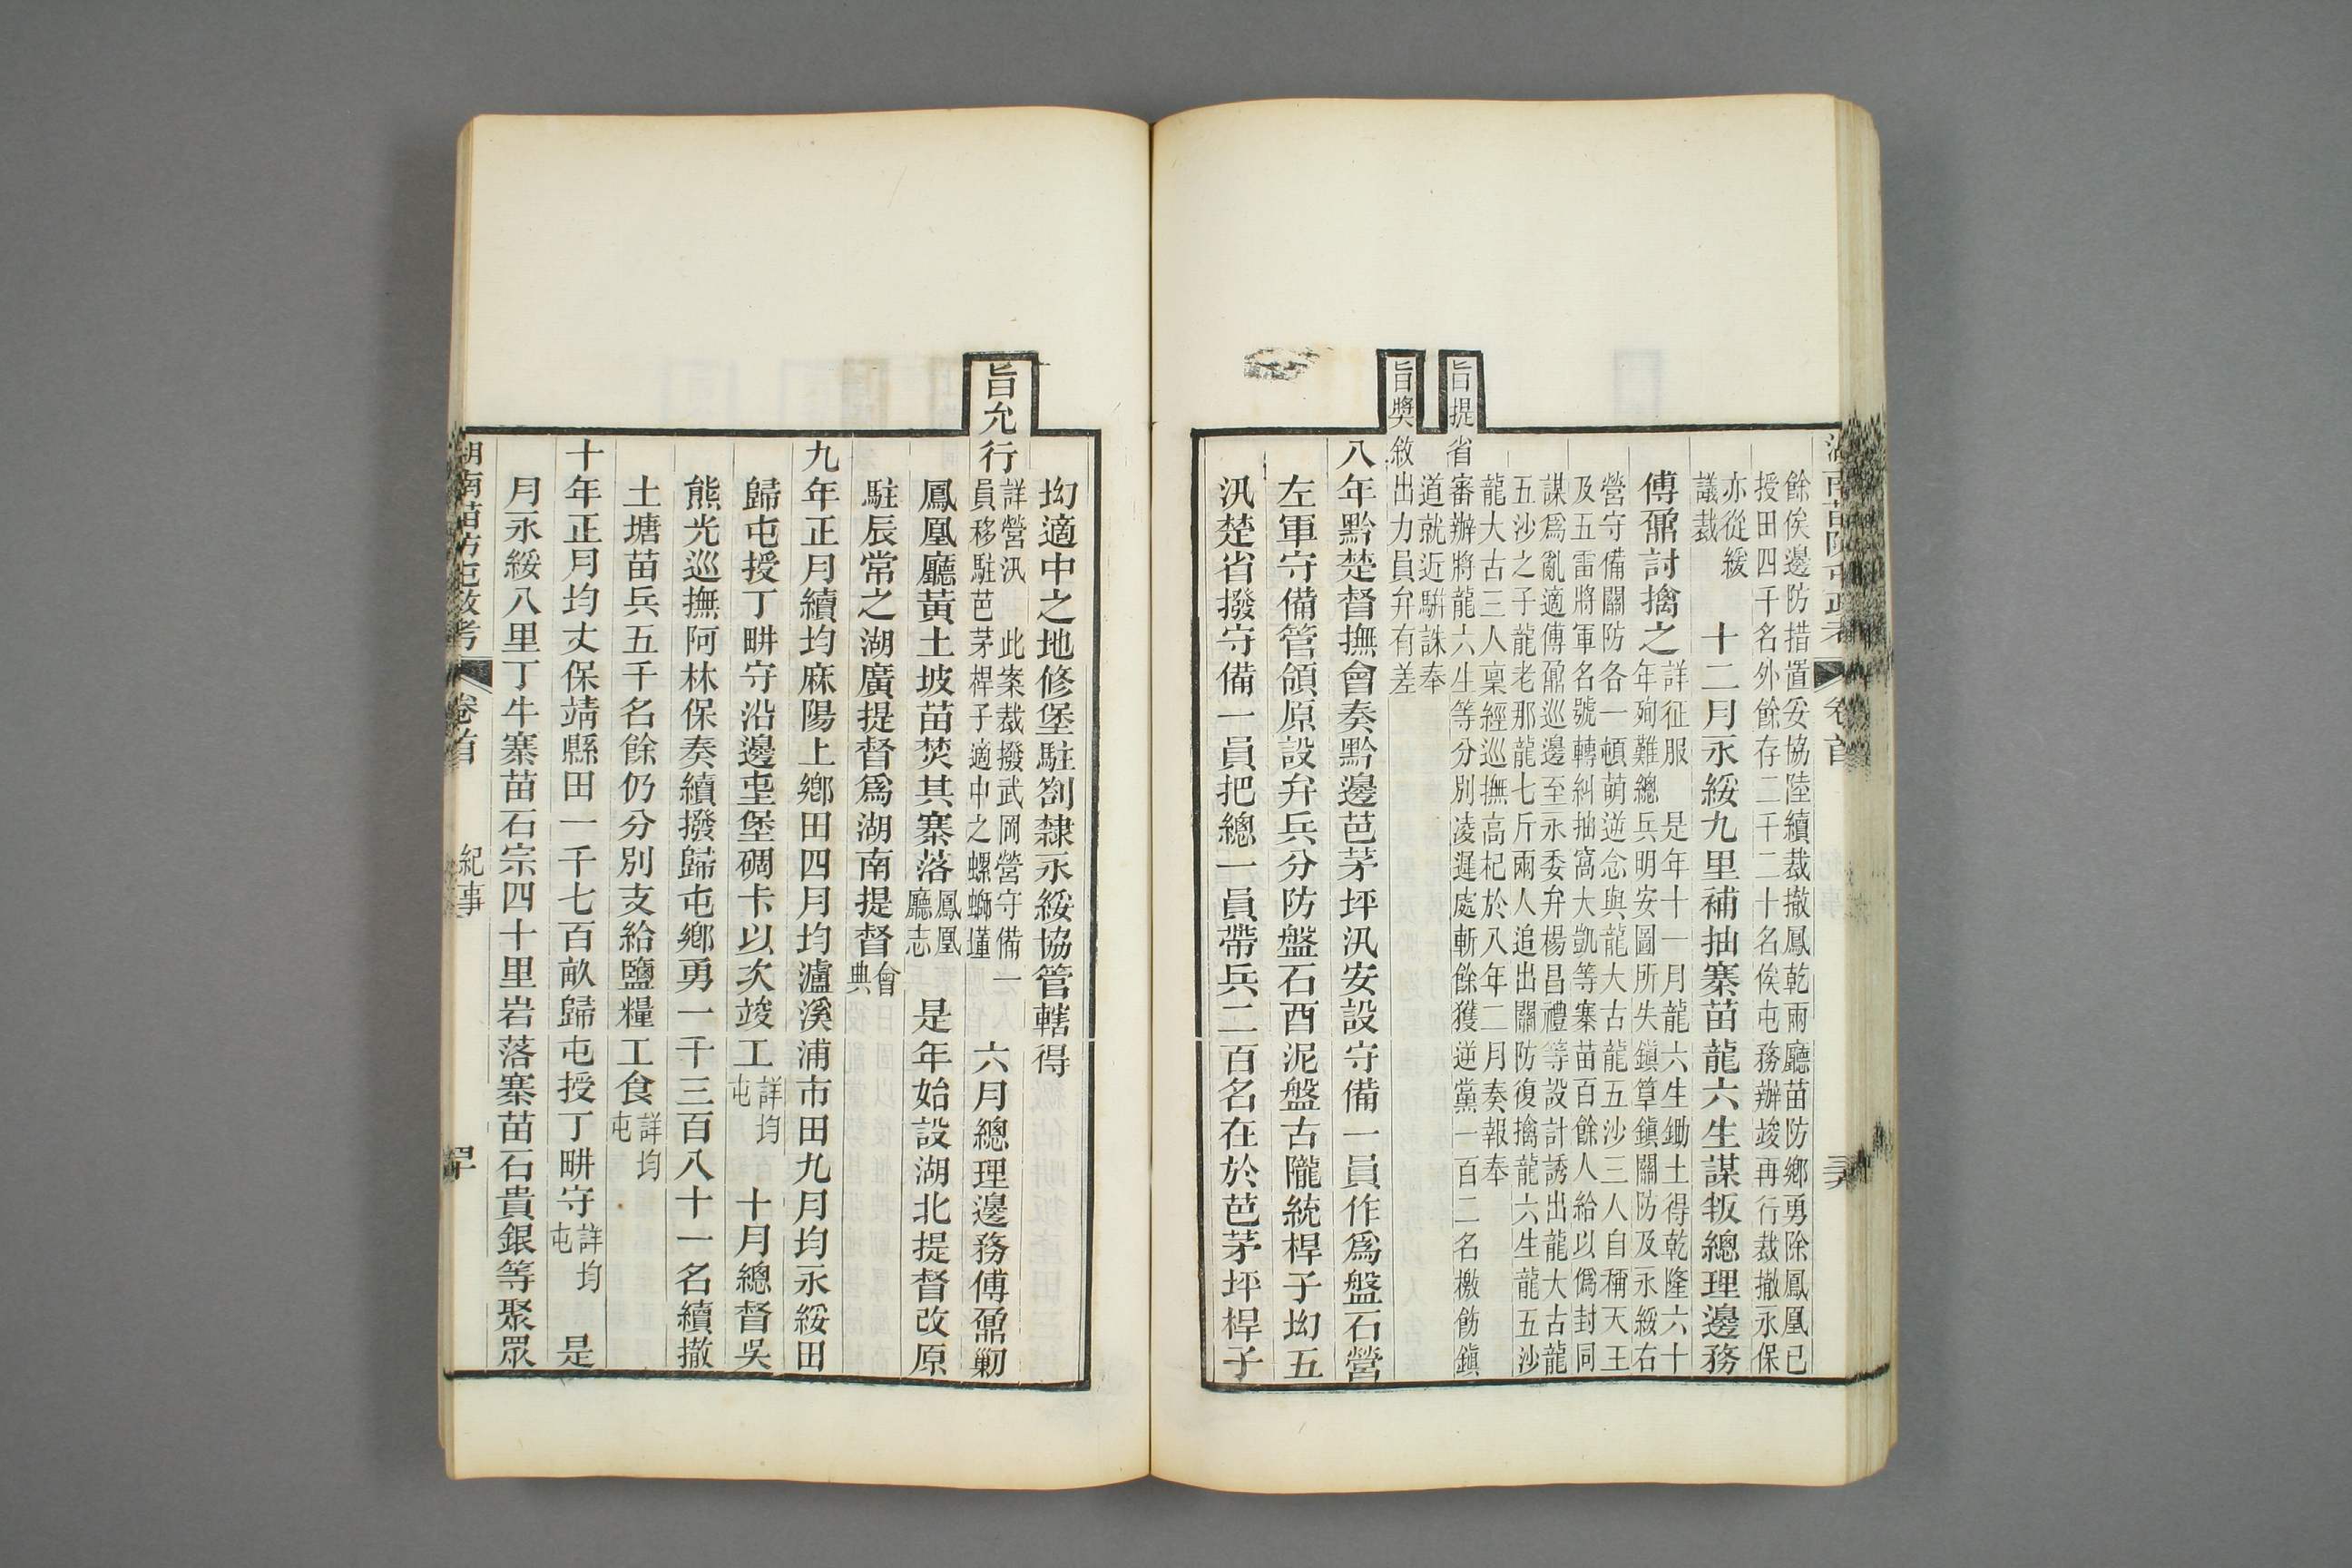 餘俟邊防措置妥協陸續裁撤鳳乾兩廳苗防鄉勇除鳳凰已
授田四千名外餘存二千二十名俟屯務辦竣再行裁撤永保
亦從緩
議裁
十二月永綏九里補抽寨苗龍六生謀叛總理邊務
傅鼐討擒之
詳征服
是年十一月龍六生鋤土得乾隆六十
年殉難總兵明安圖所失鎮筸鎮關防及永綏右
營守備關防各一頓萌逆念與龍大古龍五沙三人自稱天王
及五雷將軍名號轉糾抽窩大凱等寨苗百餘人給以僞封同
謀爲亂適傅鼐巡邊至永委弁楊昌禮等設計誘出龍大古龍
五沙之子龍老那龍七斤兩人追出關防復擒龍六生龍五沙
龍大古三人稟經巡撫高杞於八年二月奏報奉
旨提省審辦將龍六生等分別凌遲處斬餘獲逆黨一百二名檄飭鎮
道就近駢誅奉
旨獎敘出力員弁有差
八年黔楚督撫會奏黔邊芭茅坪汛安設守備一員作爲盤石營
左軍守備管領原設弁兵分防盤石酉泥盤古隴統桿子坳五
汛楚省撥守備一員把總一員帶兵二百名在於芭茅坪桿子
坳適中之地修堡駐劄隸永綏協管轄得
旨允行
詳營汛 此案裁撥武岡營守備一
員移駐芭茅桿子適中之螺螄墐
六月總理邊務傅鼐剿
鳳凰廳黃土坡苗焚其寨落
鳳凰
廳志
是年始設湖北提督改原
駐辰常之湖廣提督爲湖南提督
會
典
九年正月續均麻陽上鄉田四月均瀘溪浦市田九月均永綏田
歸屯授丁耕守沿邊屯堡碉卡以次竣工
詳均
屯
十月總督吳
熊光巡撫阿林保奏續撥歸屯鄉勇一千三百八十一名續撤
土塘苗兵五千名餘仍分別支給鹽糧工食
詳均
屯
十年正月均丈保靖縣田一千七百畝歸屯授丁耕守
詳均
屯
是
月永綏八里丁牛寨苗石宗四十里岩落寨苗石貴銀等聚眾
湖南苗防屯政考 卷首 紀事